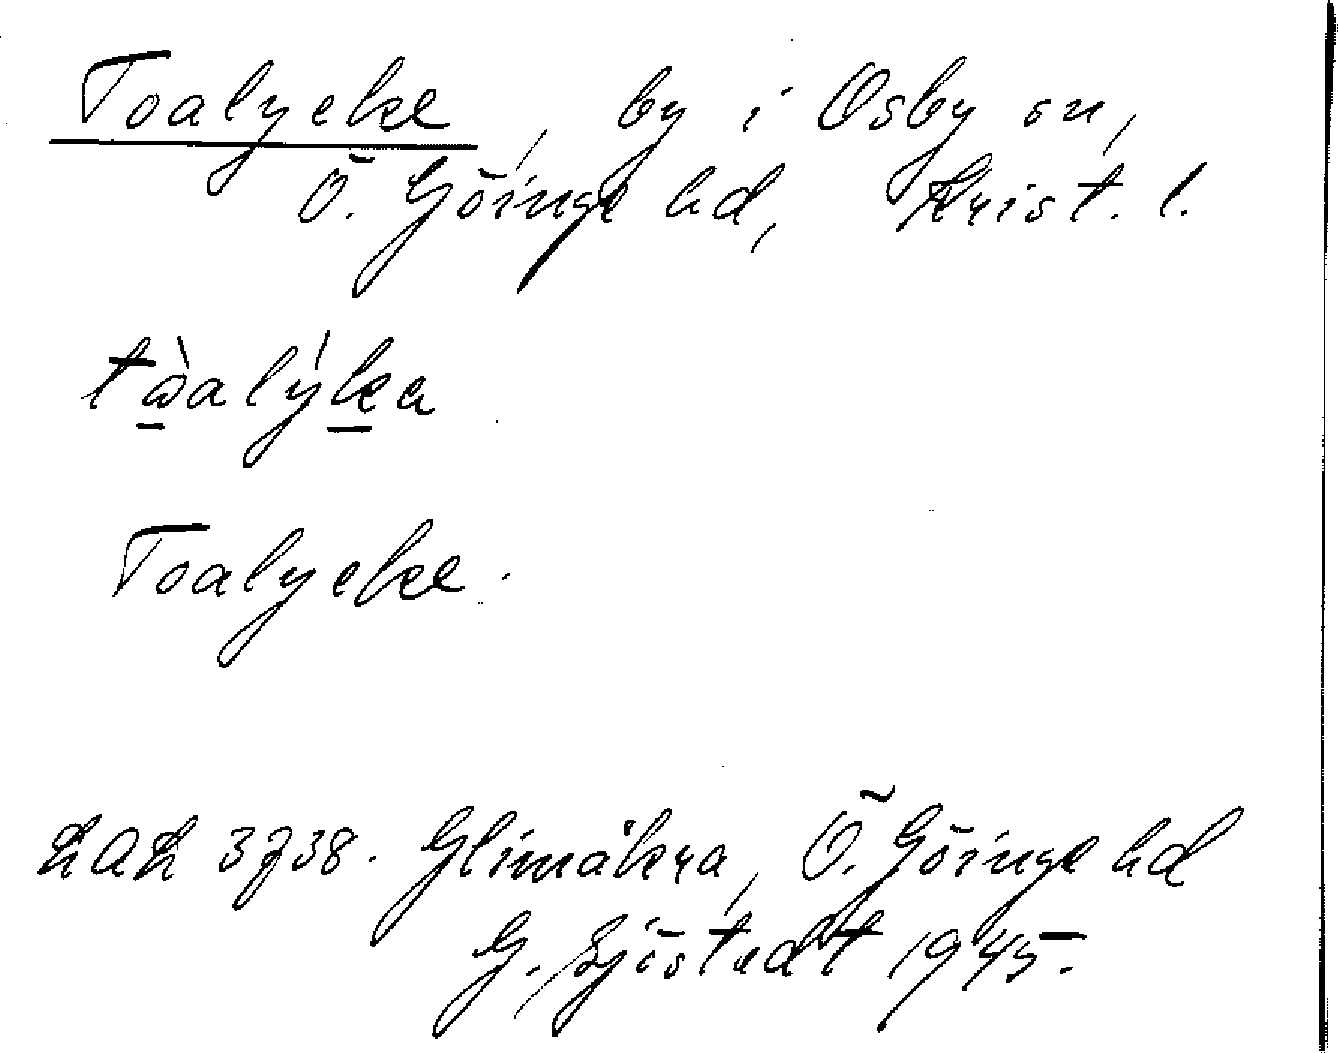 Toalycke, by i Osby sn,
Ö. Göinge hd, Krist. l.
Toalycke.
3738. Glimåkra, Ö. Göinge hd
G. Sjöstedt 1945.